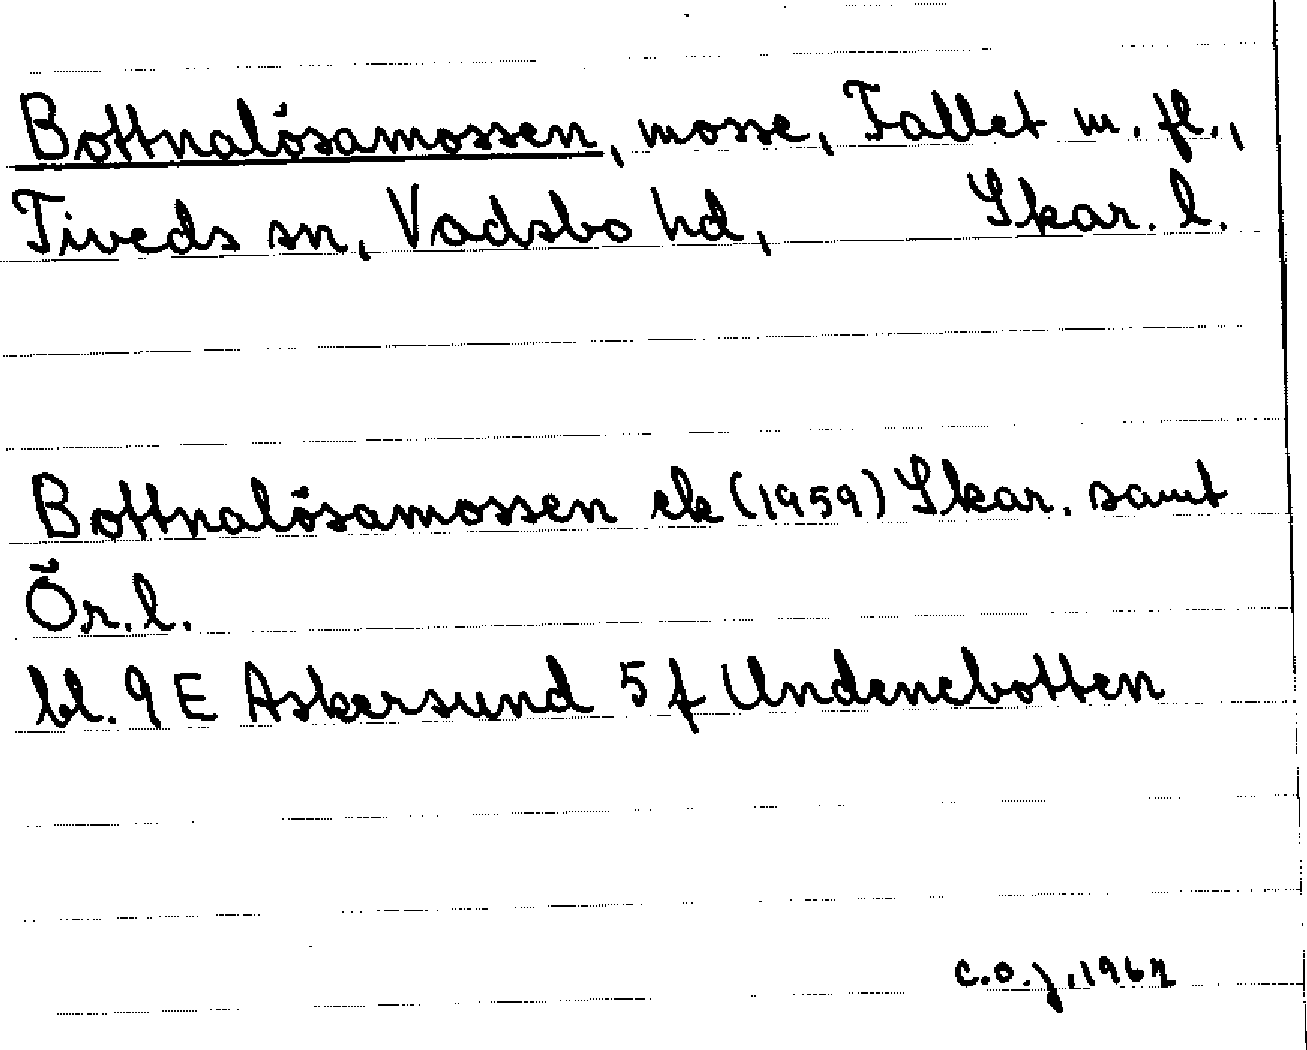 Bottnalösamossen, mosse, Fallet m. fl.,
Tiveds sn, Vadsbo hd, Skar. l.
Bottnalösamossen ek (1959) Skar. samt
Ör. l.
bl. 9 E Askersund 5 f Undenebotten
C.O.J. 1967